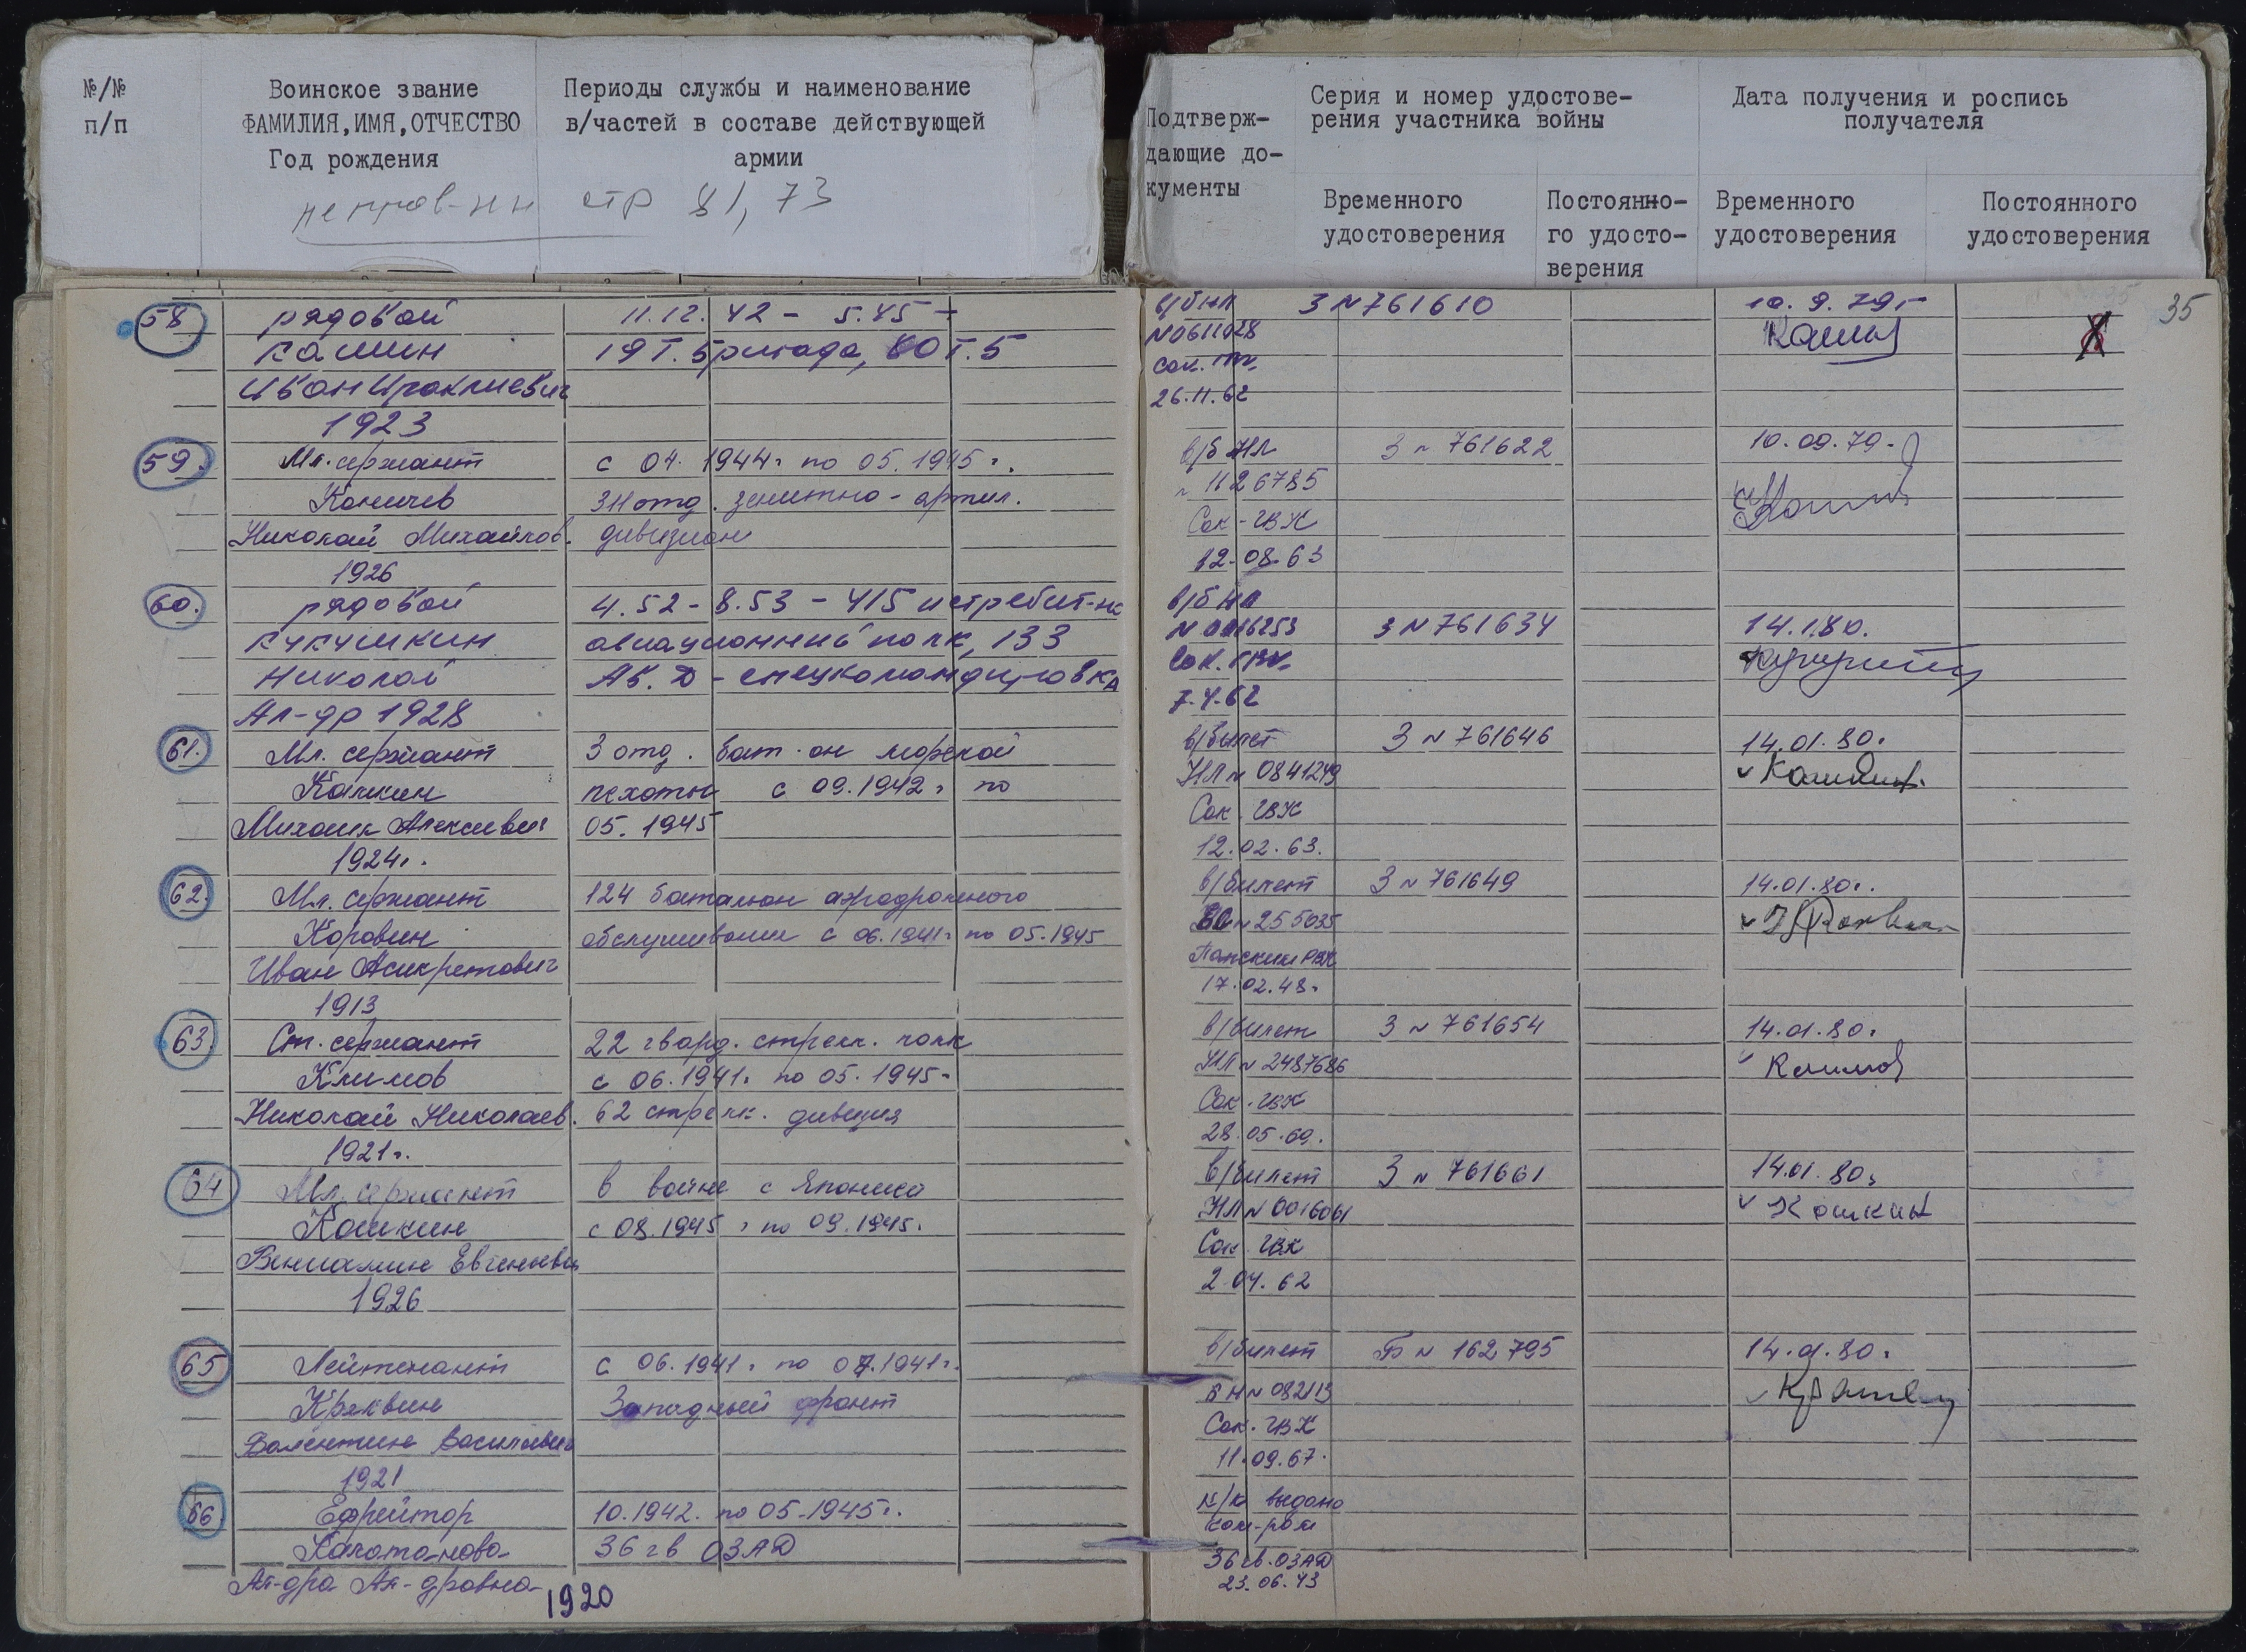 №/№
п/п
Воинское звание
ФАМИЛИЯ, ИМЯ, ОТЧЕСТВО
Год рождения
Периоды службы и наименование
в/частей в составе действующей
армии
стр 81, 73
Подтверж-
дающие до-
кументы
Серия и номер удостове-
рения участника войны
Временного
удостоверения
Постоянно-
го удосто-
верения
Дата получения и роспись
получателя
Временного
удостоверения
Постоянного
удостоверения
35
58 рядовой 11.12.42 - 5.45 -
Кашин 19 т. бригада, 60 т. б
Иван Ираклиевич
1923
в/б НЛ 3 N 761610 10.9.79 г
N 0611028
Сок.
26.11.62
59. Мл. сержант с 04. 1944 г по 05. 1945 г.
Коничев 311 отд. зенитно-артил.
Николай Михайлов. дивизион
1926
в/б НЛ 3 N 761622 10.09.79.
N 1126785
Сок - ГВК
12.08.63
60. рядовой 4.52 - 8.53 - 415 истребит-й
Кукушкин авиационный полк, 133
Николай Ав. Д - спецкомандировка
Ал-др 1928
в/б НЛ
N 0016253 3 N 761634 14.1.80.
Сок. ГВК
7.4.62
61. Мл. сержант 3 отд. бат-он морской
Калкин пехоты с 09.1942 г по
Михаил Алексеевич 05. 1945
1924 г.
в/билет 3 N 761646 14.01.80.
НЛ N 0841249
Сок. ГВК
12.02.63.
62. Мл. сержант 124 батальон аэродромного
Коровин обслуживания с 06.1941 г по 05.1945
Иван Асикретович
1913
в/билет 3 N 761649 14.01.80 г.
N 255035
РВК
17.02.48 г
63. Ст. сержант 22 гвард. стрелк. полк
Климов с 06.1941 г по 05. 1945 г
Николай Николаев. 62 стрелк. дивизия
1921 г.
в/билет 3 N 761654 14.01.80.
НЛ N 2487686 Климов
Сок. ГВК
28.05.69.
64 Мл. сержант в войне с Японией
Кошкин с 08.1945 г по 09.1945.
Вениамин Евгеньевич
1926
в/билет 3 N 761661 14.01.80.
НЛ N 0016061 Кошкин
Сок. ГВК
2.04.62
65 Лейтенант с 06.1941 г по 07.1941 г.
Кряквин Западный фронт
Валентин Васильевич
1921
в/билет Б N 162795 14.01.80.
N 082113
Сок. ГВК
11.09.67.
66 Ефрейтор 10.1942. по 05.1945 г.
36 гв ОЗАД
Ал-дра Ал-дровна
1920
к/к выдано
ком-ром
36 гв. ОЗАД
23.06.43